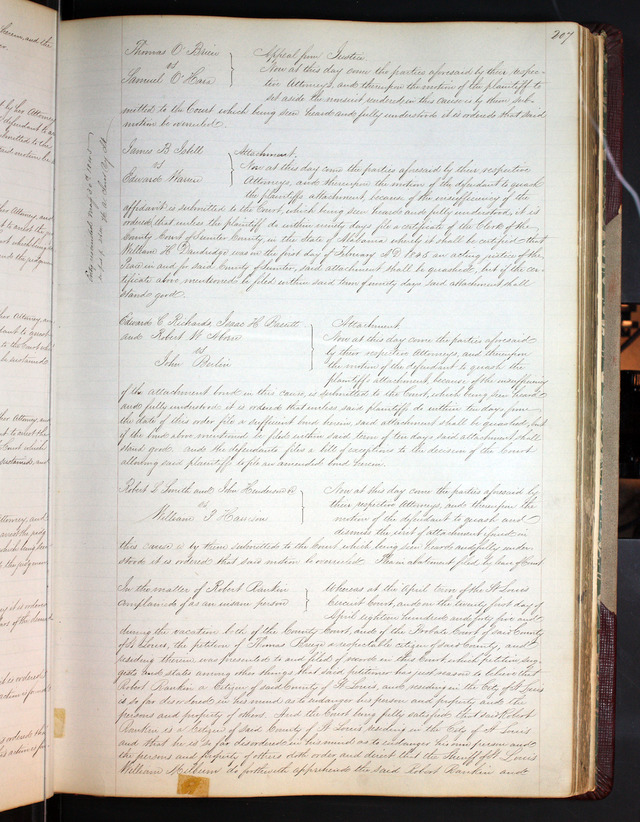 207
Thomas O'Brien Appeal from Justice
vs Now at this day come the parties aforesaid by their respec-
Samuel O'Hara tive Attorneys, and thereupon the motion of the plaintiff to
set aside the nonsuit entered in this cause is by them sub-
mitted to the Court which being seen heard and fully understood it is ordered that said
motion be overruled.
James B Isbell Attachment.
vs Now at this day come the parties aforesaid by their respective
Edward Warren Attorneys, and thereupon the motion of the defendant to quash
the plaintiffs attachment, because of the insufficiency of the
affidavit is submitted to the Court, which being seen heard and fully understood, it is
ordered that unless the plaintiff do within ninety days file a certificate of the Clerk of the
County Court of Sumter County, in the State of Alabama whereby it shall be certified that
William H. Dandridge was on the first day of February A D 1845 an acting justice of the
Peace in and for said County of Sumter, said attachment shall be quashed, but if the cer-
tificate above mentioned be filed within said term of ninety days said attachment shall
stand good.
Edward C Richards, Isaac H. Attachment
and Robert W Aborn Now at this day come the parties aforesaid
vs by their respective Attorneys, and thereupon
John Berlin the motion of the defendant to quash the
plaintiffs attachment, because of the insufficiency
of the attachment bond in this cause, is submitted to the Court, which being seen heard
and fully understood it is ordered that unless said plaintiff do within ten days from
the date of this order file a sufficient bond herein, said attachment shall be quashed, but
if the bond above mentioned be filed within said term of ten days said attachment shall
stand good. and the defendants files a bill of exceptions to the decision of the Court
allowing said plaintiff to file an amended bond herein.
Robert L Smith and John Henderson Now at this day come the parties aforesaid by
vs their respective Attorneys, and thereupon the
William F Harrison motion of the defendant to quash and
dismiss the writ of attachment issued in
this cause is by them submitted to the Court which being seen heard and fully under-
stood it is ordered that said motion be overruled. Plea in abatement filed by leave of Court
In the matter of Robert Rankin Whereas at the April term of the St Louis
complained of as an insane person Circuit Court, and on the twenty first day of
April eighteen hundred and forty five and
during the vacation both of the County Court, and of the Probate Court of said County
of St Louis, the petition of Thomas a respectable citizen of said County, and
residing therein was presented to and filed of record in this Court which petition sug-
gests and states among other things that said petitioner has just reason to believe that
Robert Rankin a Citizen of said County of St Louis, and residing in the City of St Louis
is so far disordered in his mind as to endanger his person and property and the
persons and property of others. And the Court being fully satisfied that said Robert
Rankin is a Citizen of said County of St Louis residing in the City of St Louis
and that he is so far disordered in his mind as to endanger his own person and
the persons and property of others doth order and direct that the Sheriff of St Louis
William Milburn do forthwith apprehend the said Robert Rankin and